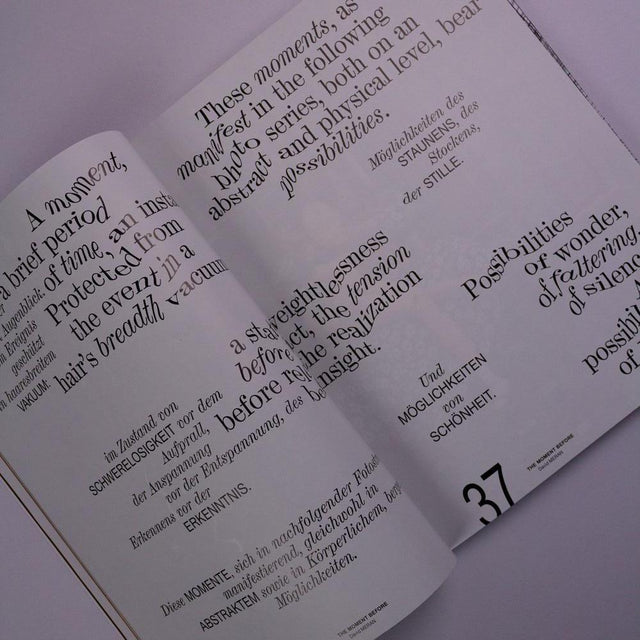 A moment,
a brief period
of time, an inst
Protected from
the event in a
hair's breadth vacuum
Augenblick,
Ereignis
geschützt
haaresbreitem
VAKUUM:
a st weightlessness
before ct, the tension
before r he realization
insight.
im Zustand von
SCHWERELOSIGKEIT vor dem
Aufprall,
der Anspannung
vor der Entspannung, des
Erkennens vor der
ERKENNTNIS.
Diese MOMENTE, sich in nachfolgender Fotos
manifestierend, gleichwohl in
ABSTRAKTEM sowie in Körperlichem, berg
Möglichkeiten.
THE MOMENT BEFORE
These moments, as
manifest in the following
photo series, both on an
abstract and physical level, bear
possibilities.
Möglichkeiten des
STAUNENS, des
Stockens,
der STILLE.
Possibilities
of wonder,
of faltering,
of silenc
possibil
of
Und
MÖGLICHKEITEN
von
SCHÖNHEIT.
37
THE MOMENT BEFORE